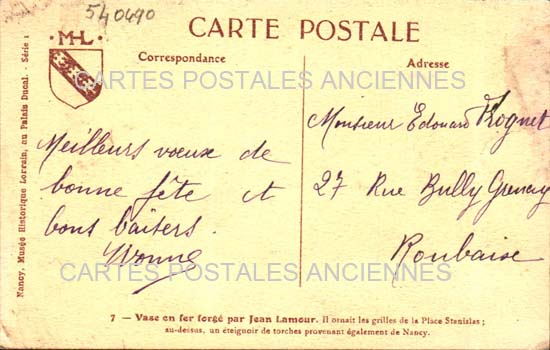 540490
CARTE POSTALE
M·H·L
Correspondance
Adresse
CARTES POSTALES ANCIENNES
Meilleurs vœux de
bonne fête et
bons baisers.
Yvonne
Monsieur Edouard
27 Rue Bully Grenay
Roubaix
CARTES POSTALES ANCIENNES
7 — Vase en fer forgé par Jean Lamour. Il ornait les grilles de la Place Stanislas ;
au-dessus, un éteignoir de torches provenant également de Nancy.
Nancy, Musée Historique Lorrain, au Palais Ducal. - Série 1